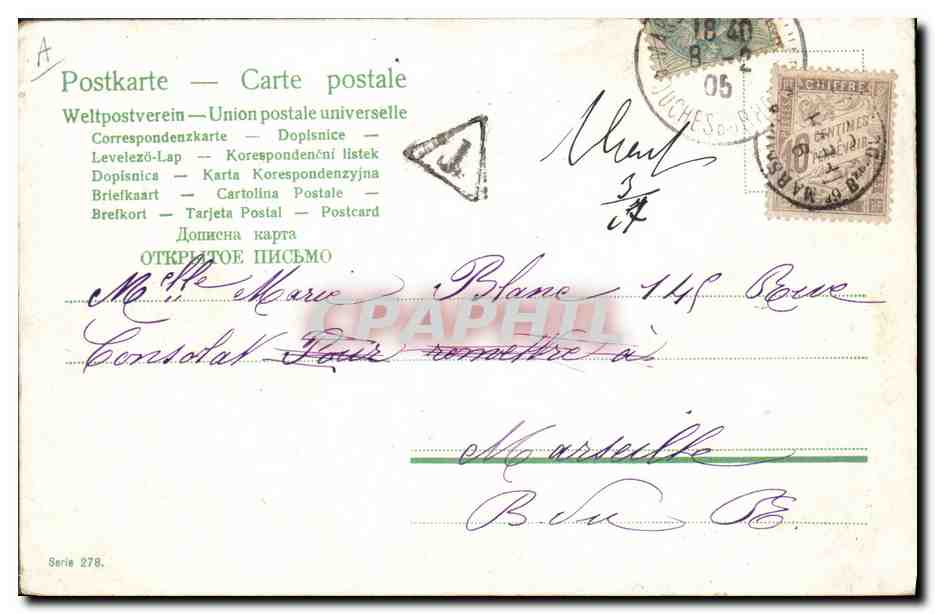 A
Postkarte — Carte postale
Weltpostverein — Union postale universelle
Correspondenzkarte — Dopisnice —
Levelező-Lap — Korespondenční listek
Dopisnica — Karta Korespondenzyjna
Briefkaart — Cartolina Postale —
Brefkort — Tarjeta Postal — Postcard
Дописна карта
ОТКРЫТОЕ ПИСЬМО
18 40
8 -2
05
UCHES DU RH
CHIFFRE
CENTIMES
MARS
T
3
Melle Marie Blanc 145 Rue
Consolat Pour remettre à
Marseille
B. du R.
CPAPHIL
Serie 278.